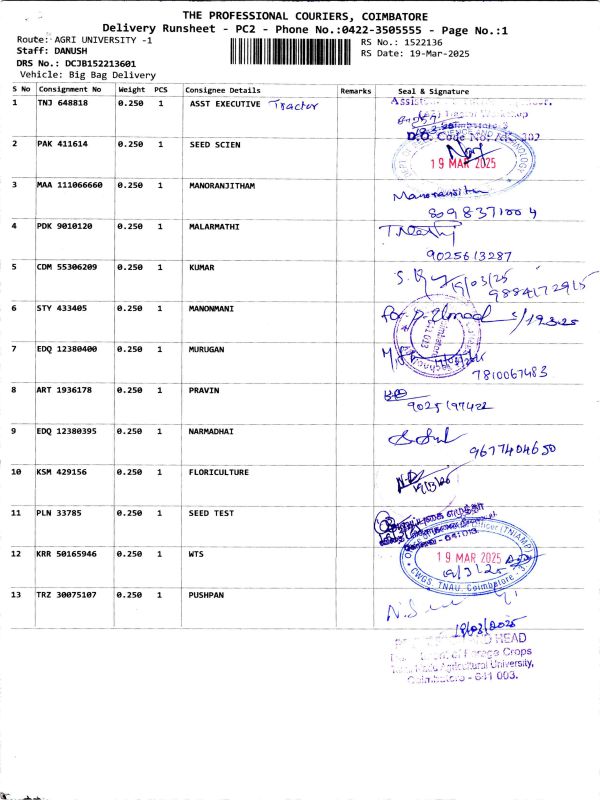 THE PROFESSIONAL COURIERS, COIMBATORE
Delivery Runsheet - PC2 - Phone No.:0422-3505555 - Page No.:1
Route: AGRI UNIVERSITY -1
RS No.: 1522136
Staff: DANUSH
RS Date: 19-Mar-2025
DRS No.: DCJB152213601
Vehicle: Big Bag Delivery
S No Consignment No Weight PCS Consignee Details Remarks Seal & Signature
1 TNJ 648818 0.250 1 ASST EXECUTIVE Tractor
2 PAK 411614 0.250 1 SEED SCIEN
19 MAR 2025
3 MAA 111066660 0.250 1 MANORANJITHAM Manoranjitha
8098371004
4 PDK 9010120 0.250 1 MALARMATHI
9025613287
5 CDM 55306209 0.250 1 KUMAR 19/03/25
9884172915
6 STY 433405 0.250 1 MANONMANI for 19.3.25
7 EDQ 12380400 0.250 1 MURUGAN
7810067483
8 ART 1936178 0.250 1 PRAVIN
9025197422
9 EDQ 12380395 0.250 1 NARMADHAI
9677404650
10 KSM 429156 0.250 1 FLORICULTURE
19/3/25
11 PLN 33785 0.250 1 SEED TEST
Officer (TNIAMP)
12 KRR 50165946 0.250 1 WTS 19 MAR 2025
19/3/25
CWGS, TNAU, Coimbatore - 3
13 TRZ 30075107 0.250 1 PUSHPAN
19/03/2025
AND HEAD
of Forage Crops
Tamil Nadu Agricultural University,
Coimbatore - 641 003.